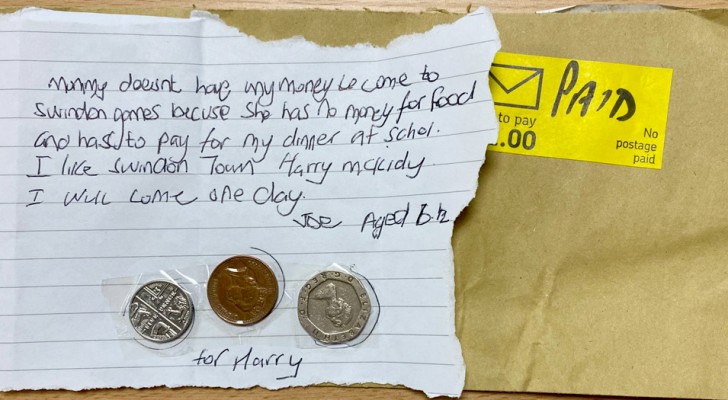 Mummy doesnt have any money to come to
Swindon games becuse she has no money for food
and hass to pay for my dinner at schol.
I like Swindon Town Harry mckirdy
I will come one day.
Joe Aged 6½
for Harry
PAID
to pay
.00
No
postage
paid